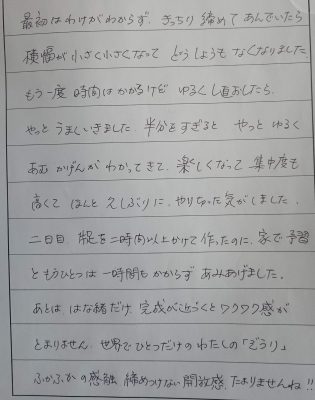 最初はわけがわからず、きっちり締めてあんでいたら
横幅が小さく小さくなって どうしようもなくなりました
もう一度 時間はかかるけど ゆるくし直おしたら、
やっと うまくいきました。半分をすぎると やっと ゆるく
あむ かげんがわかってきて、楽しくなって 集中度も
高くて ほんと 久しぶりに、やりきった気がしました。
二日目、片足を二時間以上かけて作ったのに、家で予習
ともうひとつは一時間もかからず あみあげました。
あとは、はな緒だけ、完成が近づくとワクワク感が
とまりません。世界でひとつだけのわたしの「ぞうり」
ふかふかの感触、締めつけない開放感、たまりませんね!!